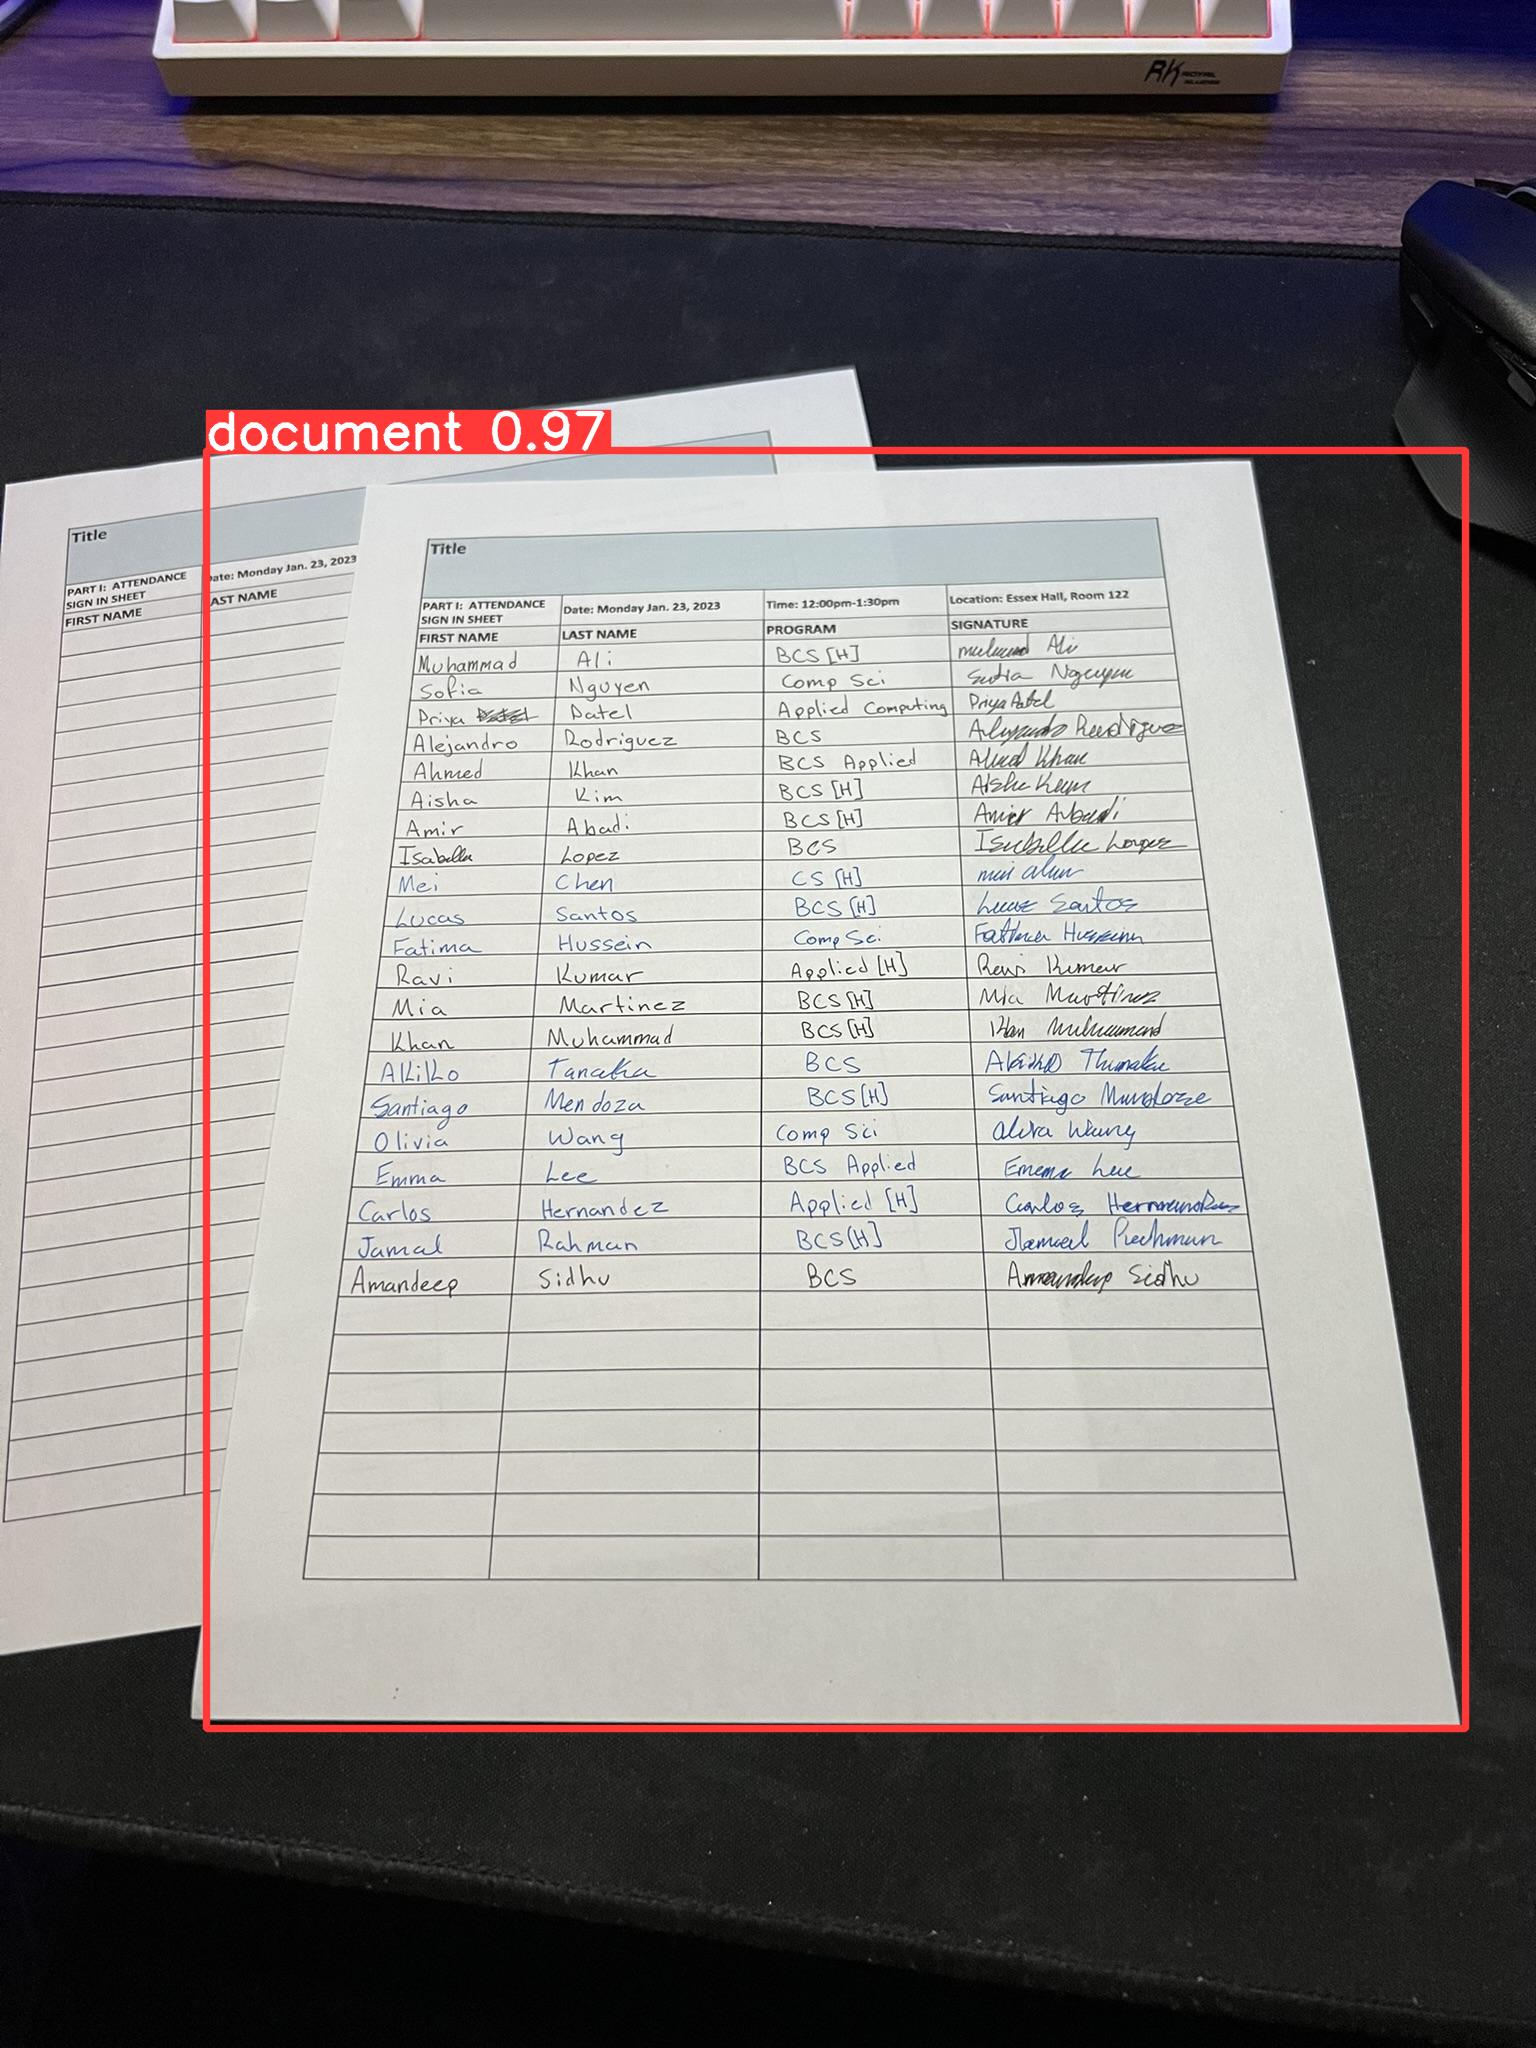 RK ROYAL KLUDGE
document 0.97
Title
PART I: ATTENDANCE SIGN IN SHEET
Date: Monday Jan. 23, 2023
FIRST NAME LAST NAME
Title
PART I: ATTENDANCE SIGN IN SHEET Date: Monday Jan. 23, 2023 Time: 12:00pm-1:30pm Location: Essex Hall, Room 122
FIRST NAME LAST NAME PROGRAM SIGNATURE
Muhammad Ali BCS [H] Ali
Sofia Nguyen Comp Sci Nguyen
Priya Patel Applied Computing Priya Patel
Alejandro Rodriguez BCS Alejandro Rodriguez
Ahmed Khan BCS Applied Ahmed Khan
Aisha Kim BCS [H] Aisha
Amir Abadi BCS [H] Amir Abadi
Isabella Lopez BCS Isabella Lopez
Mei Chen CS [H]
Lucas Santos BCS [H] Lucas Santos
Fatima Hussein Comp Sci Fatima Hussein
Ravi Kumar Applied [H] Ravi Kumar
Mia Martinez BCS [H] Mia Martinez
Khan Muhammad BCS [H] Khan Muhammad
Akiko Tanaka BCS Akiko
Santiago Mendoza BCS [H] Santiago
Olivia Wang Comp Sci Wang
Emma Lee BCS Applied Emma Lee
Carlos Hernandez Applied [H] Carlos Hernandez
Jamal Rahman BCS [H] Jamal Rahman
Amandeep Sidhu BCS Amandeep Sidhu